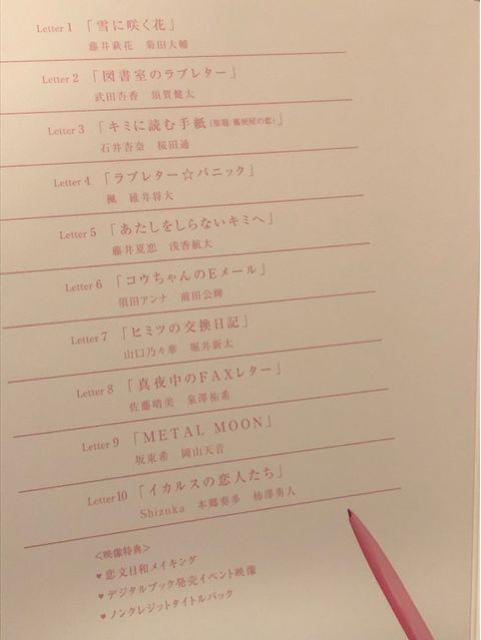 Letter 1 「雪に咲く花」
藤井萩花 菊田大輔
Letter 2 「図書室のラブレター」
武田杏香 須賀健太
Letter 3 「キミに読む手紙(原題:郵便屋の恋)」
石井杏奈 桜田通
Letter 4 「ラブレター☆パニック」
楓 碓井将大
Letter 5 「あたしをしらないキミへ」
藤井夏恋 浅香航大
Letter 6 「コウちゃんのEメール」
須田アンナ 前田公輝
Letter 7 「ヒミツの交換日記」
山口乃々華 堀井新太
Letter 8 「真夜中のFAXレター」
佐藤晴美 泉澤祐希
Letter 9 「METAL MOON」
坂東希 岡山天音
Letter 10 「イカルスの恋人たち」
Shizuka 本郷奏多 柿澤勇人
<映像特典>
♥恋文日和メイキング
♥デジタルブック発売イベント映像
♥ノンクレジットタイトルバック